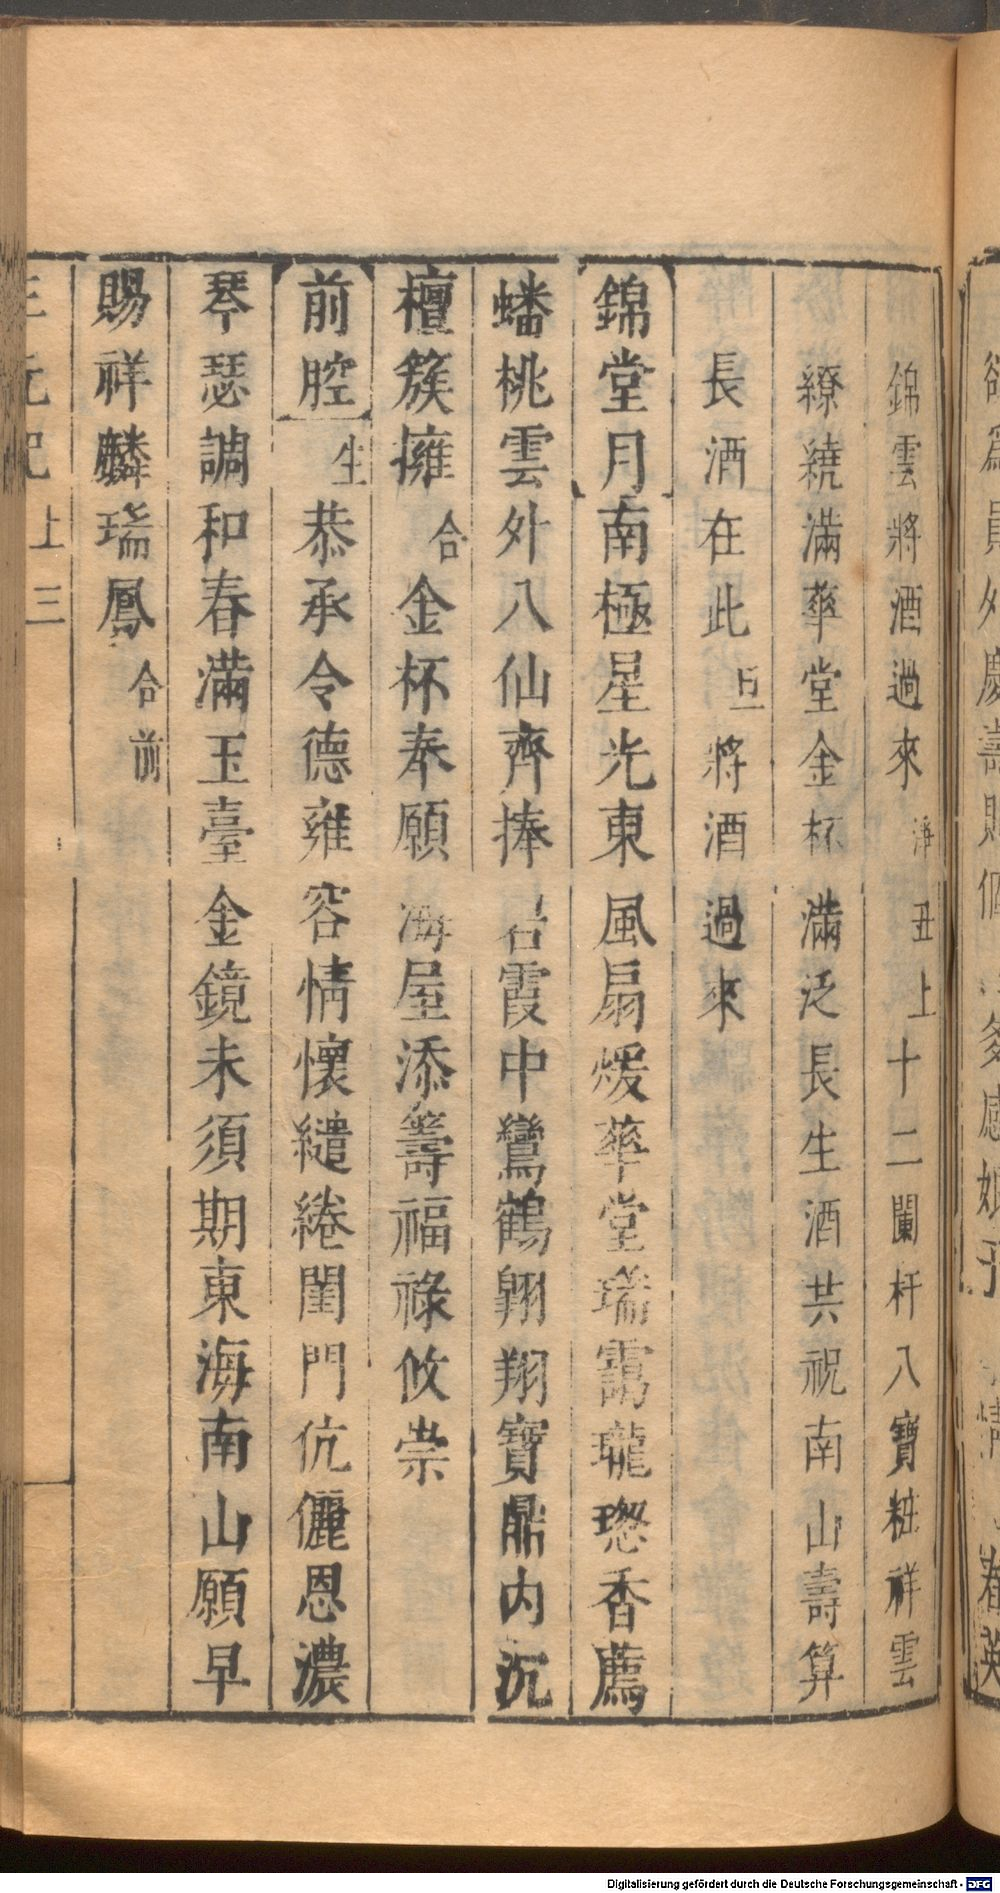 錦雲將酒過來淨丑上十二闌杆八寶粧祥雲
繚繞滿華堂金杯滿泛長生酒共祝南山壽算
長酒在此旦將酒過來
錦堂月南極星光東風扇煖華堂瑞靄瓏璁香薦
蟠桃雲外八仙齊捧 霞中鸞鶴翱翔寶鼎內沉
檀簇擁合金杯奉願海屋添籌福祿攸崇
前腔生恭承令德雍容情懷繾綣閨門伉儷恩濃
琴瑟調和春滿玉臺金鏡未須期東海南山願早
賜祥麟瑞鳳合前
三元記 上 三
Digitalisierung gefördert durch die Deutsche Forschungsgemeinschaft - DFG